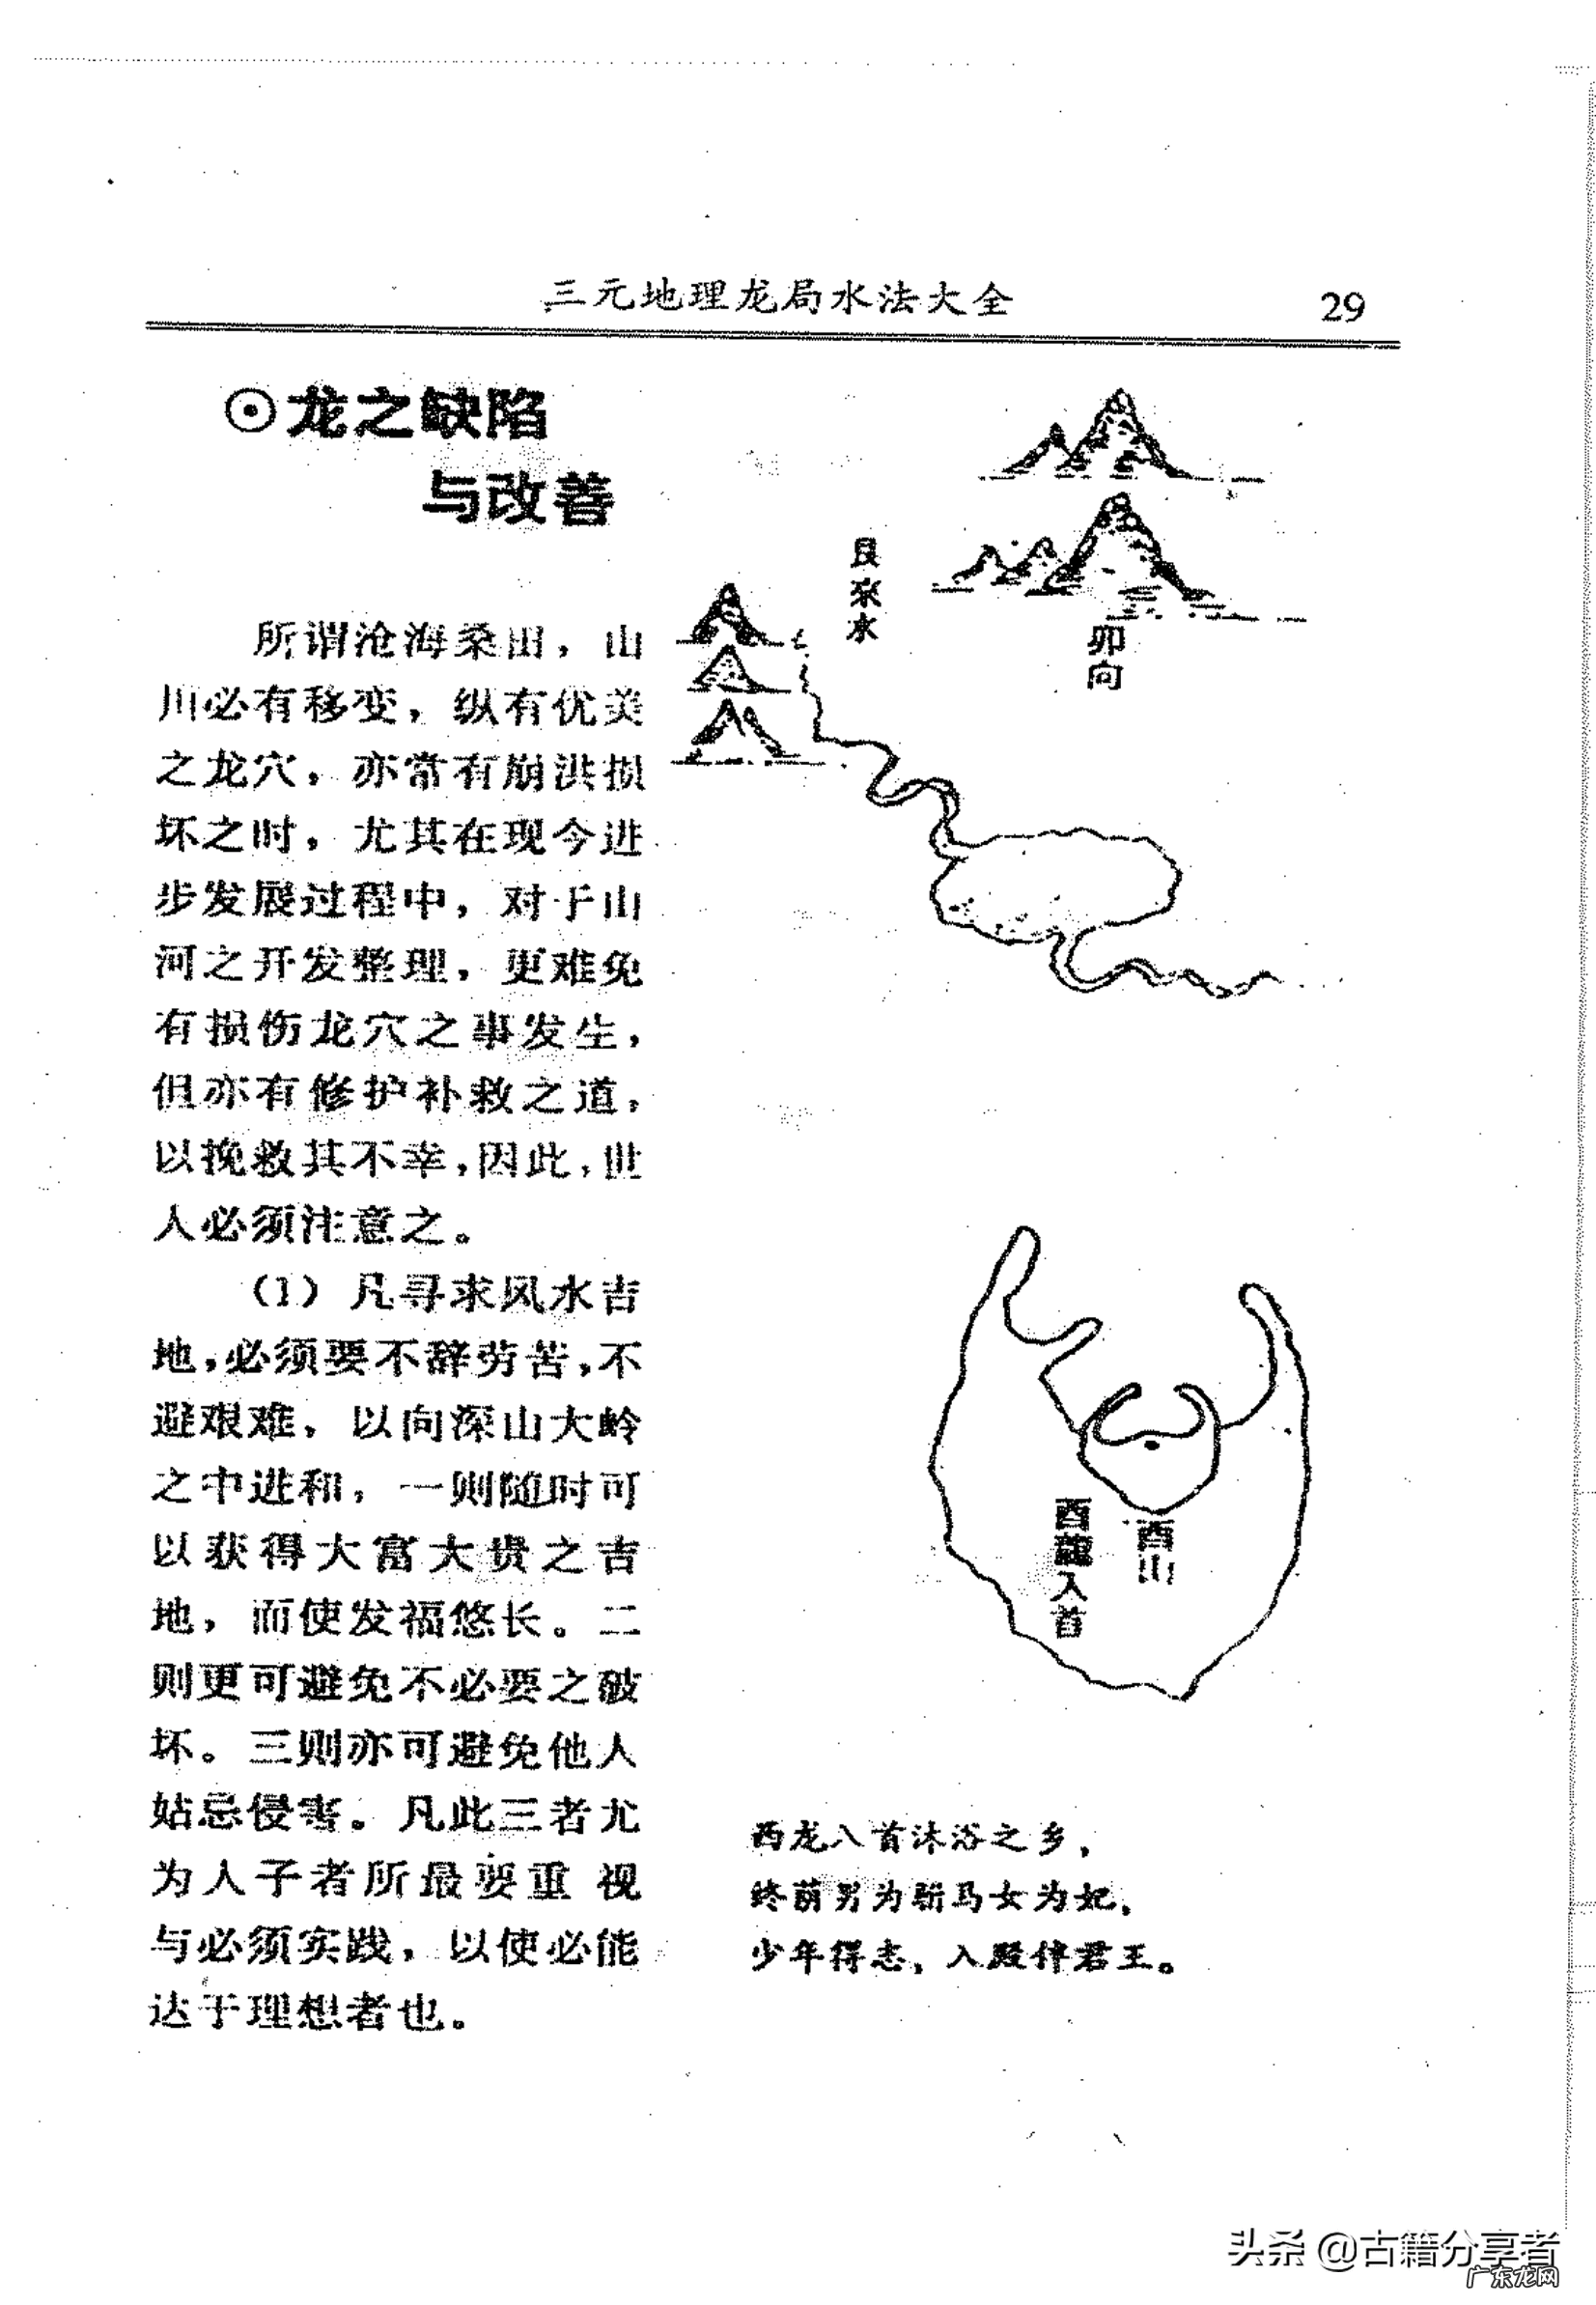 三元地理龙局水法大全
29
⊙龙之缺陷
与改善
所谓沧海桑田，山
川必有移变，纵有优美
之龙穴，亦常有崩洪损
坏之时，尤其在现今进
步发展过程中，对于山
河之开发整理，更难免
有损伤龙穴之事发生，
但亦有修护补救之道，
以挽救其不幸，因此，世
人必须注意之。
（1）凡寻求风水吉
地，必须要不辞劳苦，不
避艰难，以向深山大岭
之中进和，一则随时可
以获得大富大贵之吉
地，而使发福悠长。二
则更可避免不必要之破
坏。三则亦可避免他人
姑忌侵害。凡此三者尤
为人子者所最要重视
与必须实践，以使必能
达于理想者也。
艮来水
卯向
酉龍入首
酉山
酉龙八首沐浴之乡，
终荫男为驸马女为妃，
少年得志，入殿伴君王。
头条@古籍分享者
广东龙网